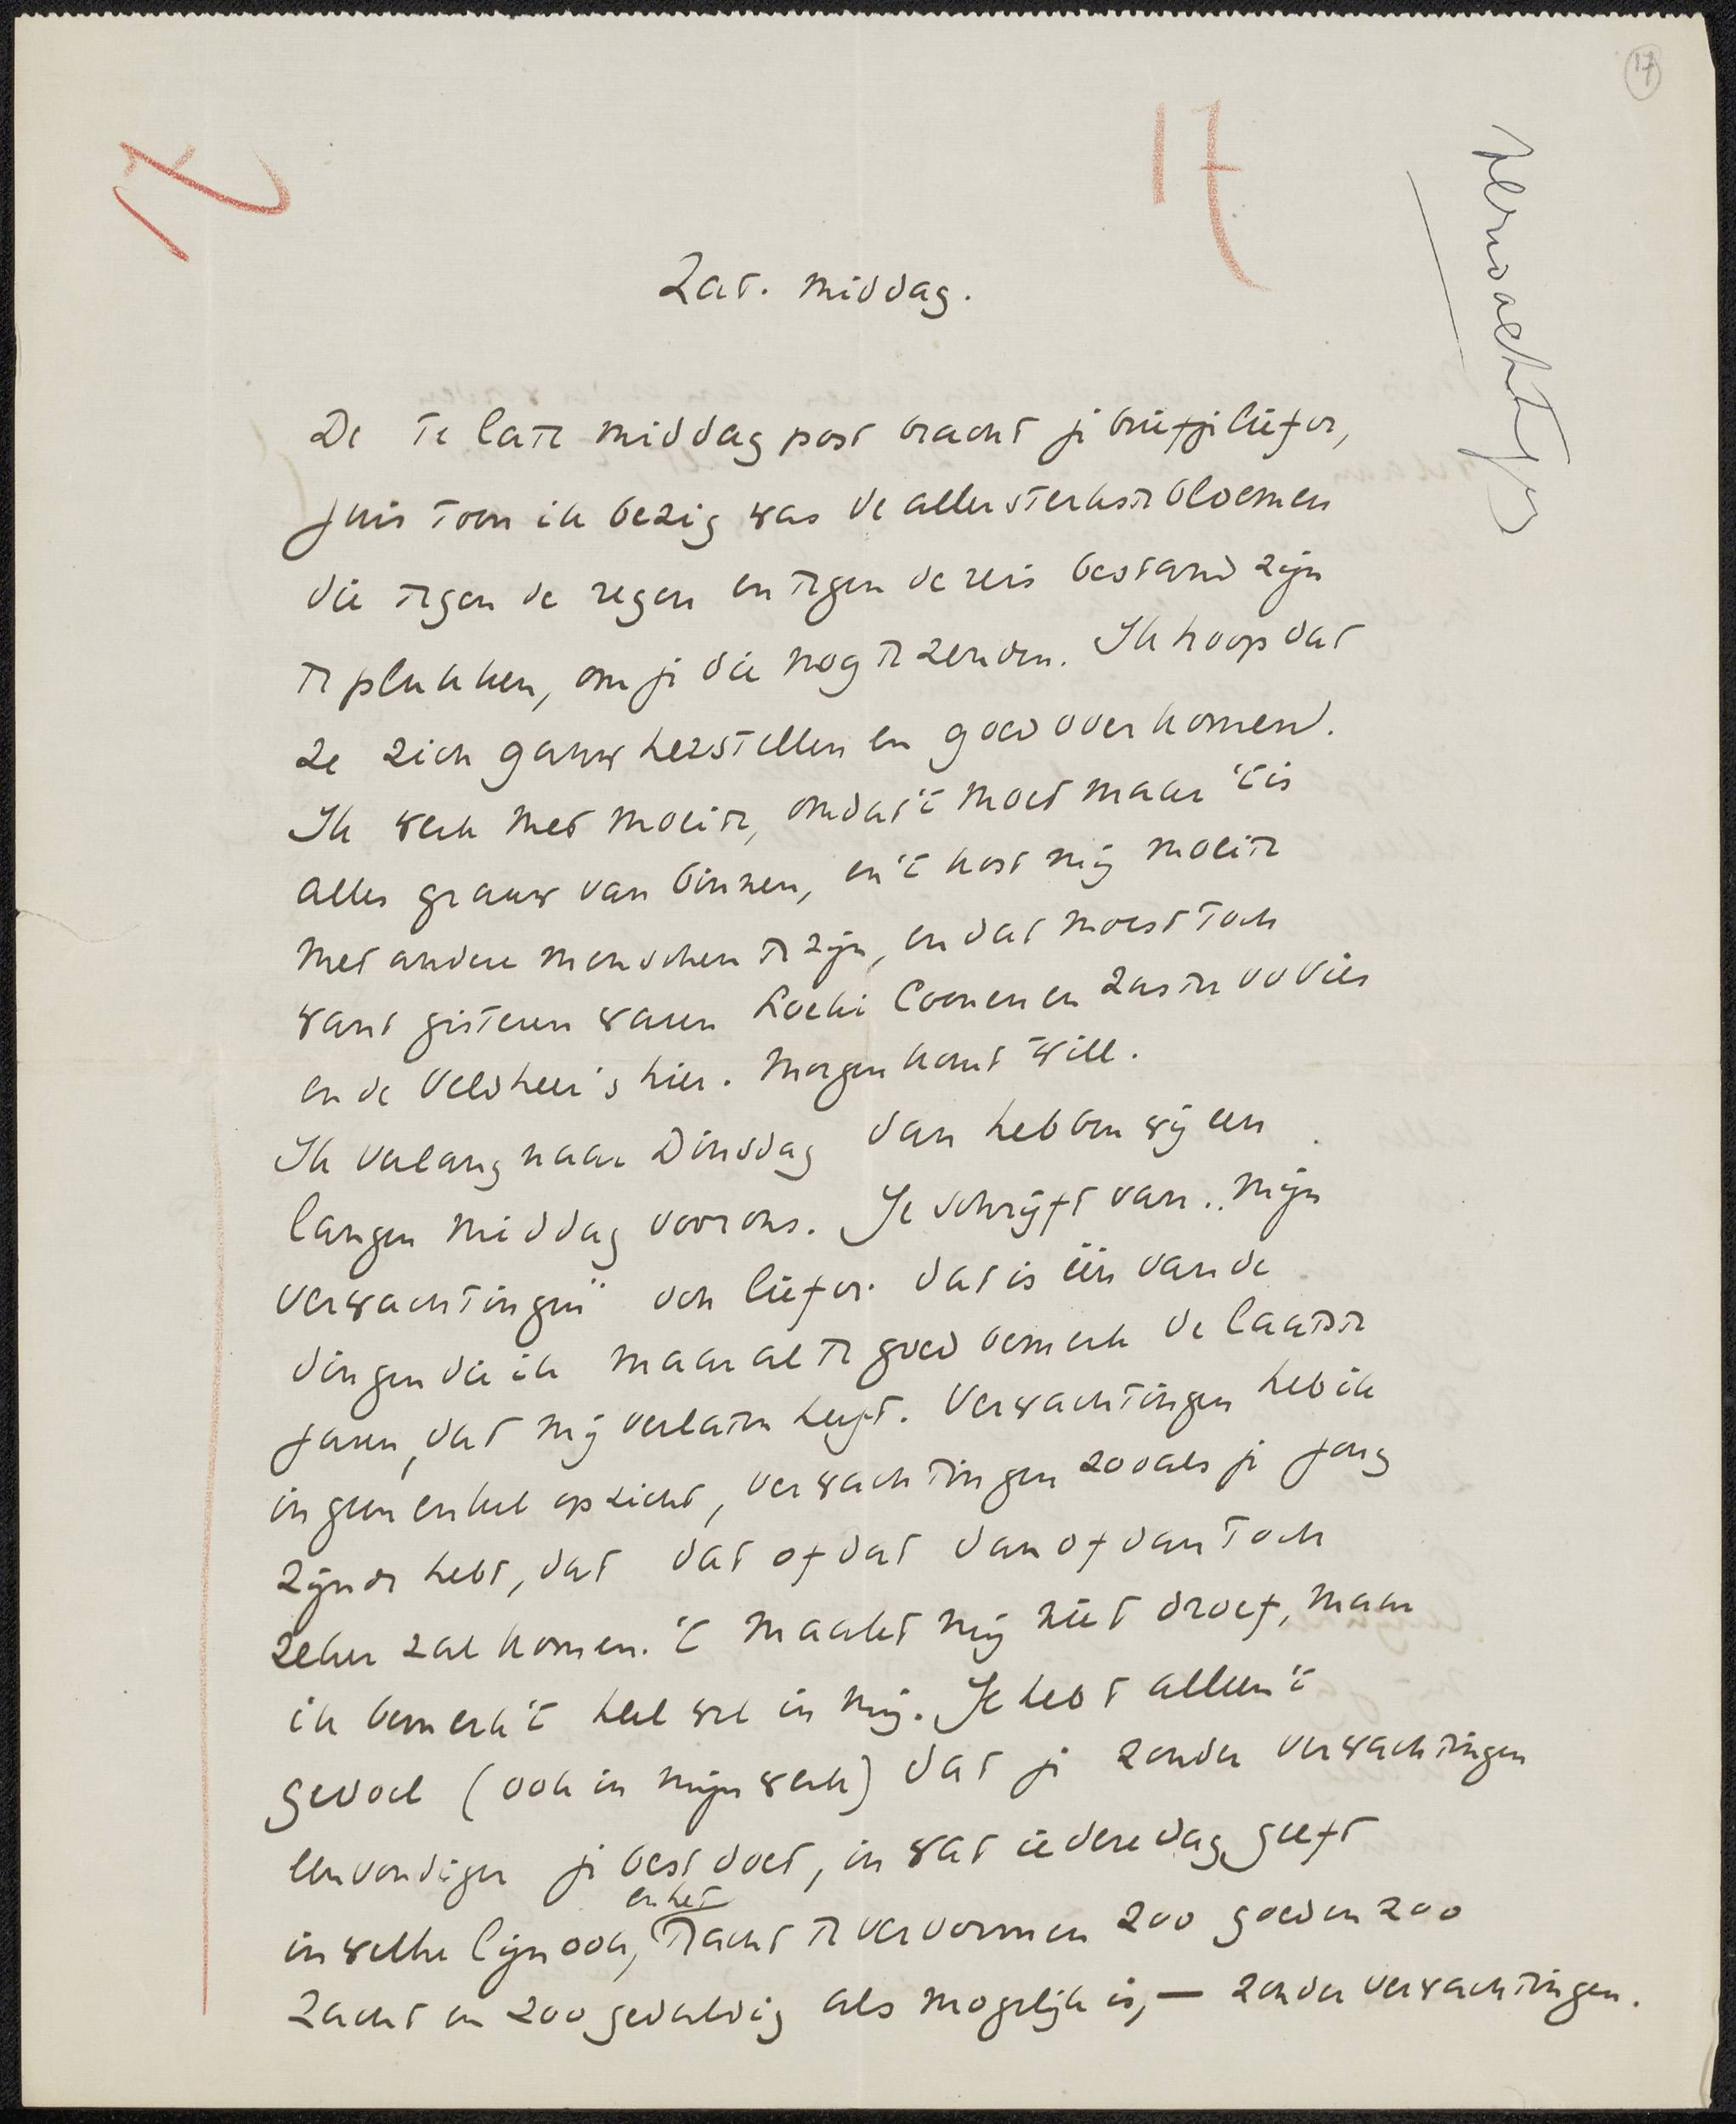 17
17
17
verwachting
Zat. middag.
De te late middag post bracht je briefje liefde,
juis toen ik bezig was de allersterkste bloemen
die tegen de regen en tegen de reis bestand zijn
te plukken, om je die nog te zenden. Ik hoop dat
ze zich gauw herstellen en goed overkomen.
Ik werk met moeite, omdat 't moet maar 't is
alles grauw van binnen, en 't kost mij moeite
met andere menschen te zijn, en dat moest toch
want gisteren waren Loeki Coenen en zuster
en de Veldheer's hier. Morgen komt Will.
Ik verlang naar Dinsdag dan hebben wij een
langen middag voor ons. Je schrijft van „mijn
verwachtingen" och liefde. dat is één van de
dingen die ik maar al te goed bemerk de laatste
jaren, dat mij verlaten heeft. Verwachtingen heb ik
in geen enkel opzicht, verwachtingen zooals je jong
zijnde hebt, dat dat of dat dan of dan toch
zeker zal komen. 't maakt mij niet droef, maar
ik bemerk 't heel wel in mij. Je hebt alleen 't
gevoel (ook in mijn werk) dat je zonder verwachtingen
eenvoudiger je best doet, in wat iedere dag geeft
in welke lijn ook, en het tracht te vervormen zoo goed en zoo
zacht en zoo geduldig als mogelijk is, — zonder verwachtingen.